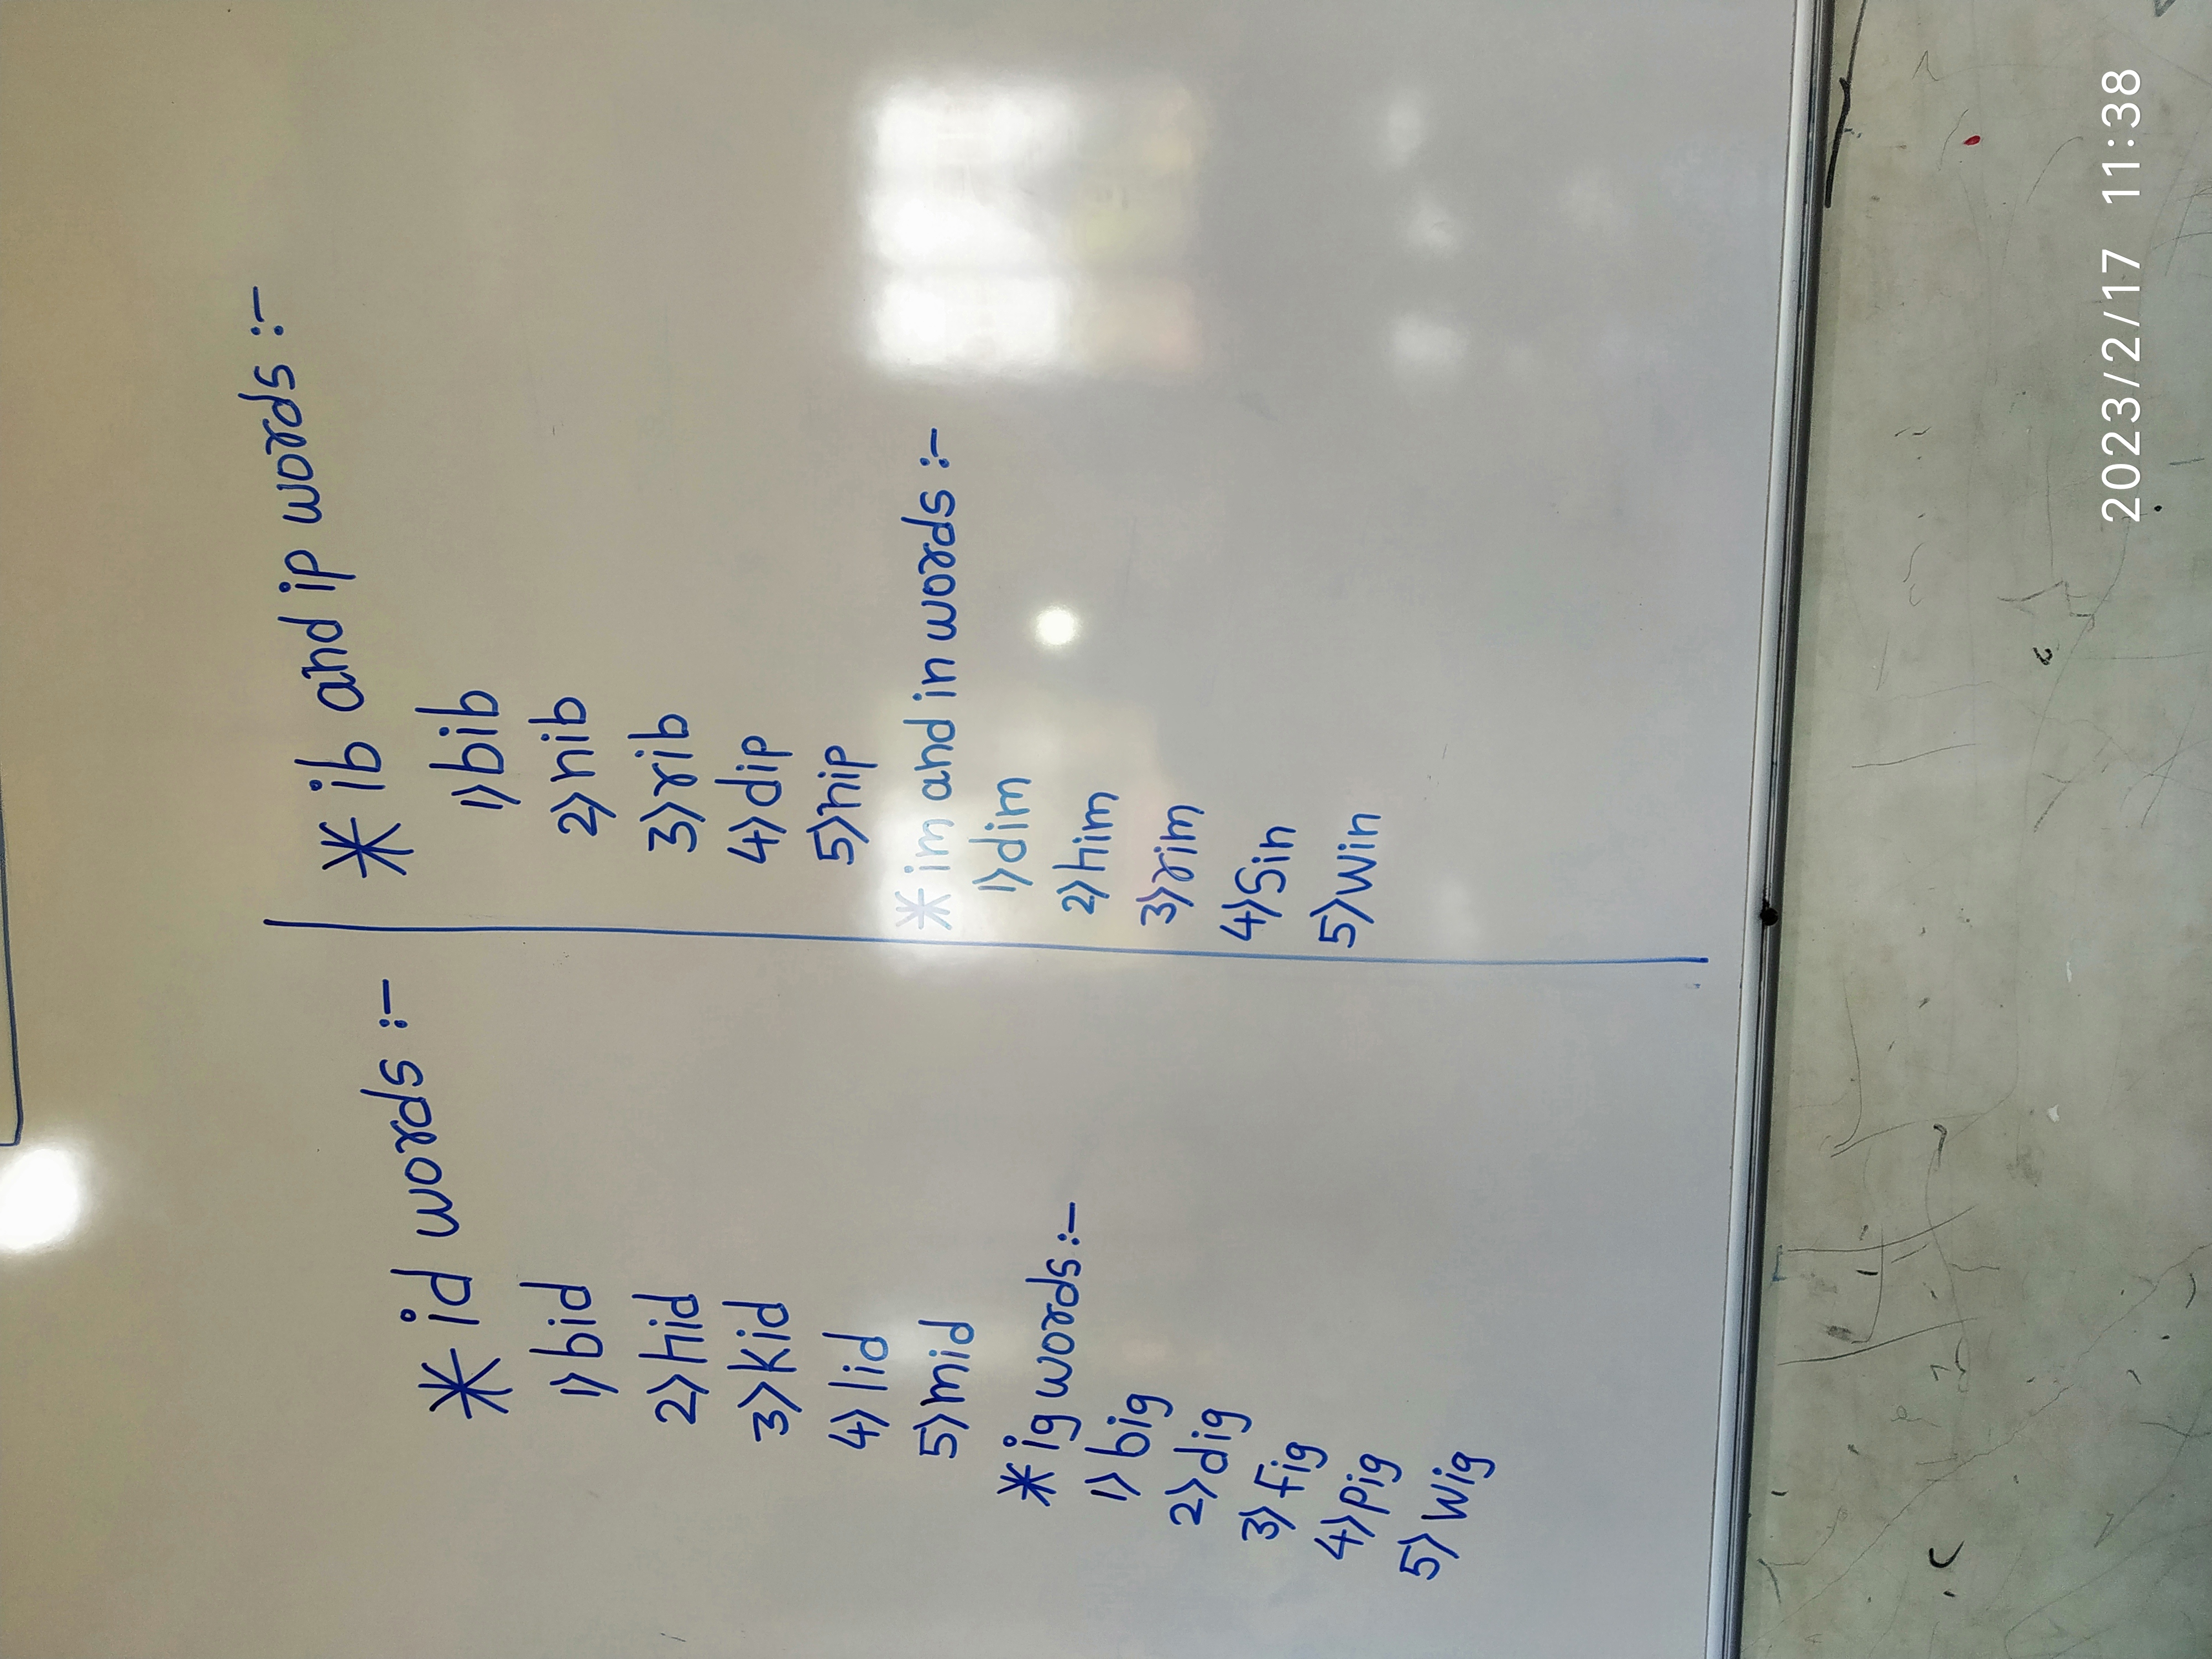 * id words :-
1) bid
2) hid
3) Kid
4) lid
5) mid
* ig words :-
1) big
2) dig
3) fig
4) Pig
5) Wig
* ib and ip words :-
1) bib
2) nib
3) rib
4) dip
5) nip
* im and in words :-
1) dim
2) him
3) rim
4) Sin
5) Win
2023/2/17 11:38